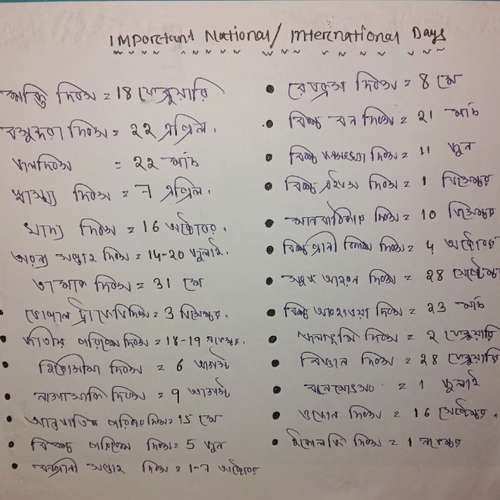 Important National/International Days
দিবস = 18 ফেব্রুয়ারি
বসুন্ধরা দিবস = 22 এপ্রিল.
জলদিবস = 22 মার্চ
স্বাস্থ্য দিবস = 7 এপ্রিল.
খাদ্য দিবস = 16 অক্টোবর.
অরণ্য সপ্তাহ দিবস = 14-20 জুলাই.
তামাক দিবস = 31 মে
ভোপাল ট্র্যাজেডি দিবস = 3 ডিসেম্বর.
জাতীয় পরিবেশ দিবস = 18-19 নভেম্বর.
হিরোশিমা দিবস = 6 আগস্ট
নাগাসাকি দিবস = 9 আগস্ট
আন্তর্জাতিক পরিবার দিবস = 15 মে
বিশ্ব পরিবেশ দিবস = 5 জুন
বন্যপ্রাণী সপ্তাহ দিবস = 1-7 অক্টোবর
রেডক্রস দিবস = 8 মে
বিশ্ব বন দিবস = 21 মার্চ
বিশ্ব জনসংখ্যা দিবস = 11 জুন
বিশ্ব এইডস দিবস = 1 ডিসেম্বর
মানবাধিকার দিবস = 10 ডিসেম্বর
বিশ্ব প্রাণী দিবস = 4 অক্টোবর
দিবস = 28 সেপ্টেম্বর
বিশ্ব আবহাওয়া দিবস = 23 মার্চ
জলাভূমি দিবস = 2 ফেব্রুয়ারি
বিজ্ঞান দিবস = 28 ফেব্রুয়ারি
বনমহোৎসব = 1 জুলাই
ওজোন দিবস = 16 সেপ্টেম্বর.
ইকোলজি দিবস = 1 নভেম্বর